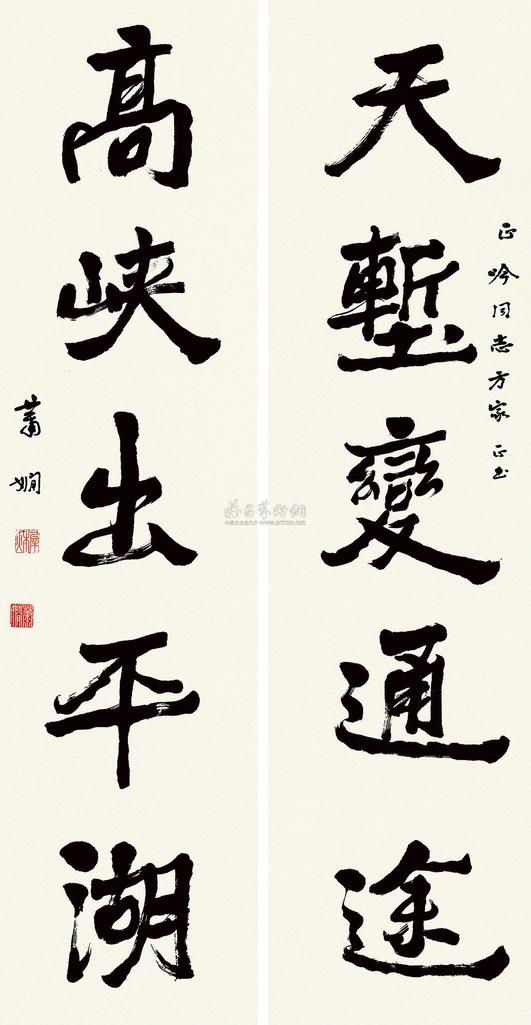 天塹變通途
正吟同志方家正書
高峽出平湖
蕭嫻
www.artron.net